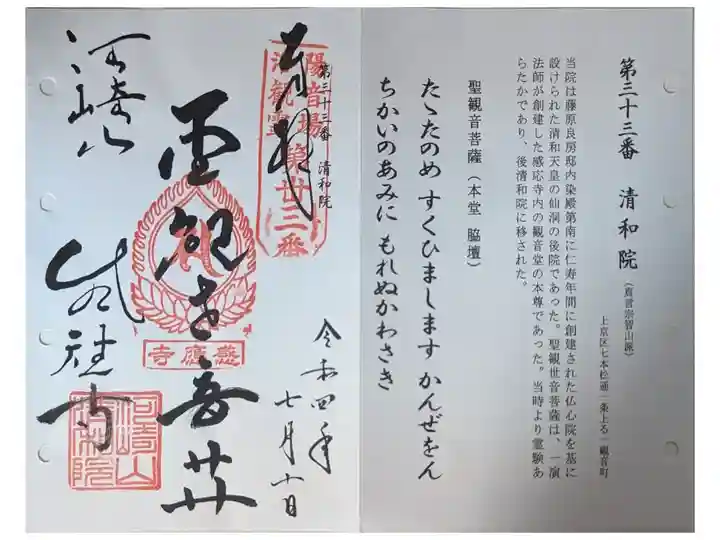 第三十三番 清和院
（真言宗智山派）
上京区七本松通一条上る一観音町
当院は藤原良房邸内染殿第南に仁寿年間に創建された仏心院を基に
設けられた清和天皇の仙洞の後院であった。聖観世音菩薩は、一演
法師が創建した感応寺内の観音堂の本尊であった。当時より霊験あ
らたかであり、後清和院に移された。
聖観音菩薩（本堂 脇壇）
たゝたのめ すくひまします かんぜをん
ちかいのあみに もれぬかわさき
奉拝
第三十三番 清和院
洛陽観音霊場
第卅三番
令和四年
七月十日
聖観世音𦬇
感應寺
河崎山
感應寺
河崎山
清和院